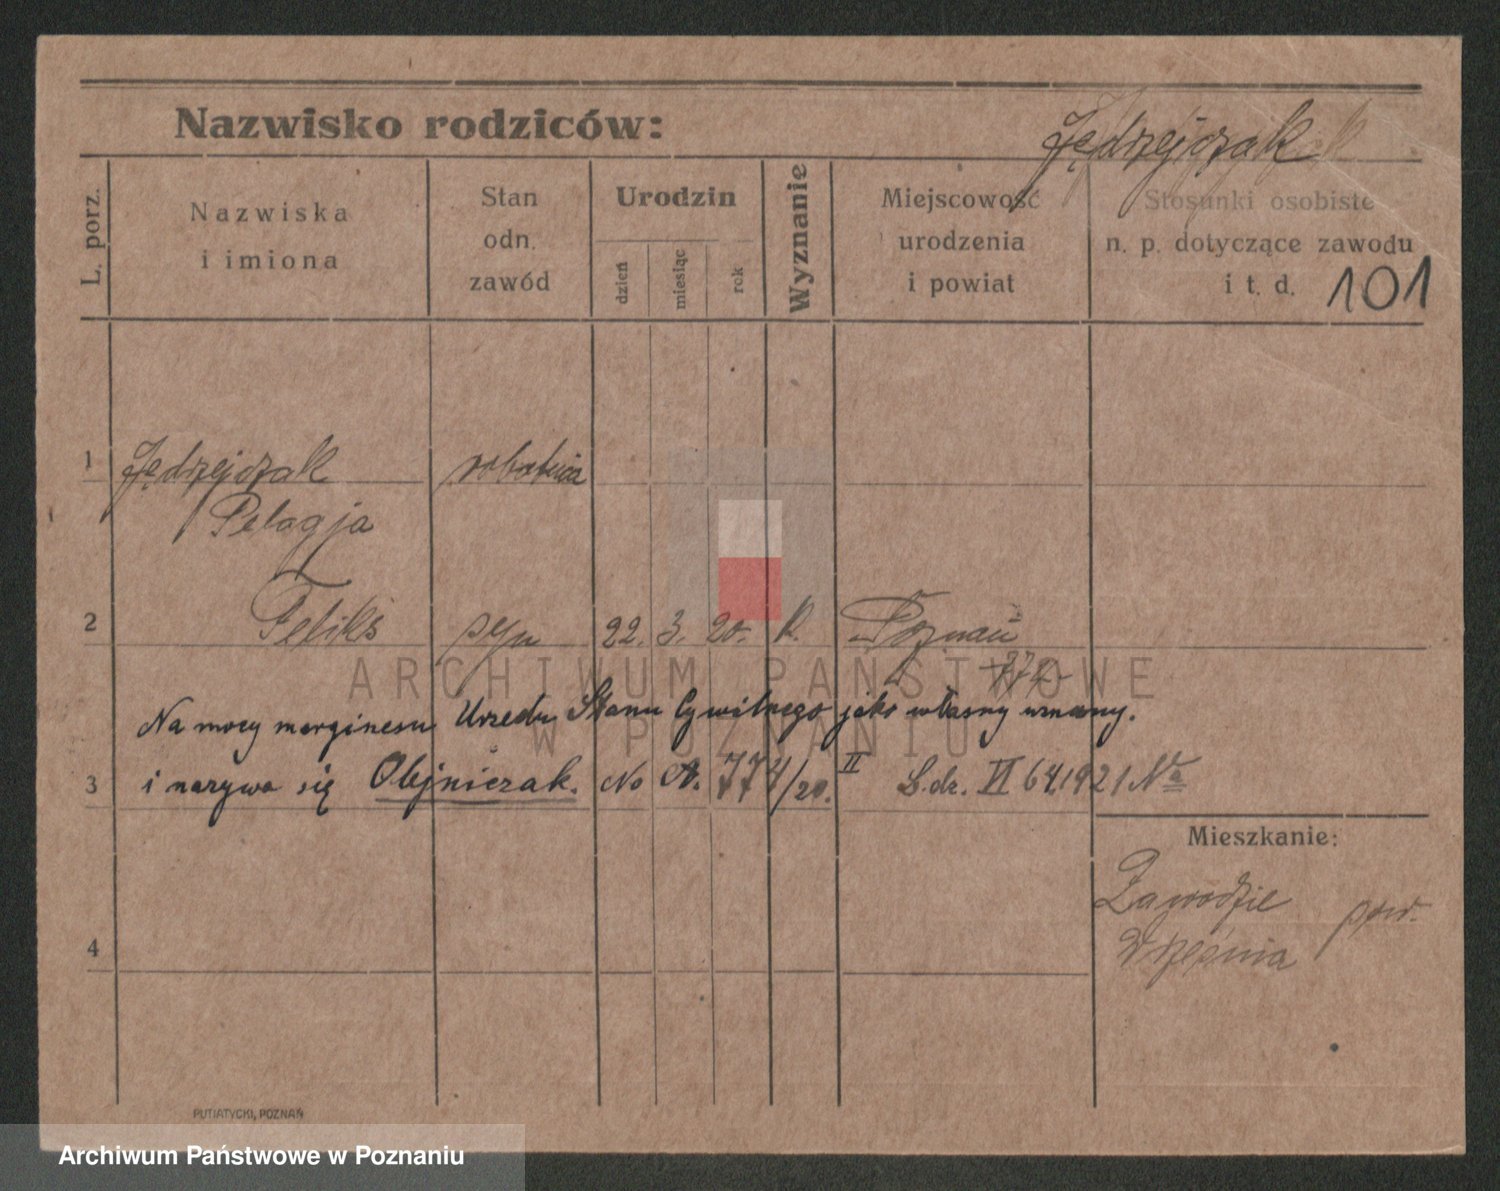 Nazwisko rodziców: Jędrzejczak
L. porz.
Nazwiska
i imiona
Stan
odn.
zawód
Urodzin
dzień
miesiąc
rok
Wyznanie
Miejscowość
urodzenia
i powiat
Stosunki osobiste
n. p. dotyczące zawodu
i t. d.
101
1 Jędrzejczak robotnica
Pelagja
2 Feliks syn 22. 3. 20. k. Poznań
774
Na mocy marginesu Urzędu Stanu Cywilnego jako własny uznany.
3 i nazywa się Olejniczak. No A. 774/20. II L.dz. VI 64.1921 Na
Mieszkanie:
Zawodzie pow.
Września
4
PUTIATYCKI, POZNAŃ
ARCHIWUM PAŃSTWOWE
W POZNANIU
Archiwum Państwowe w Poznaniu